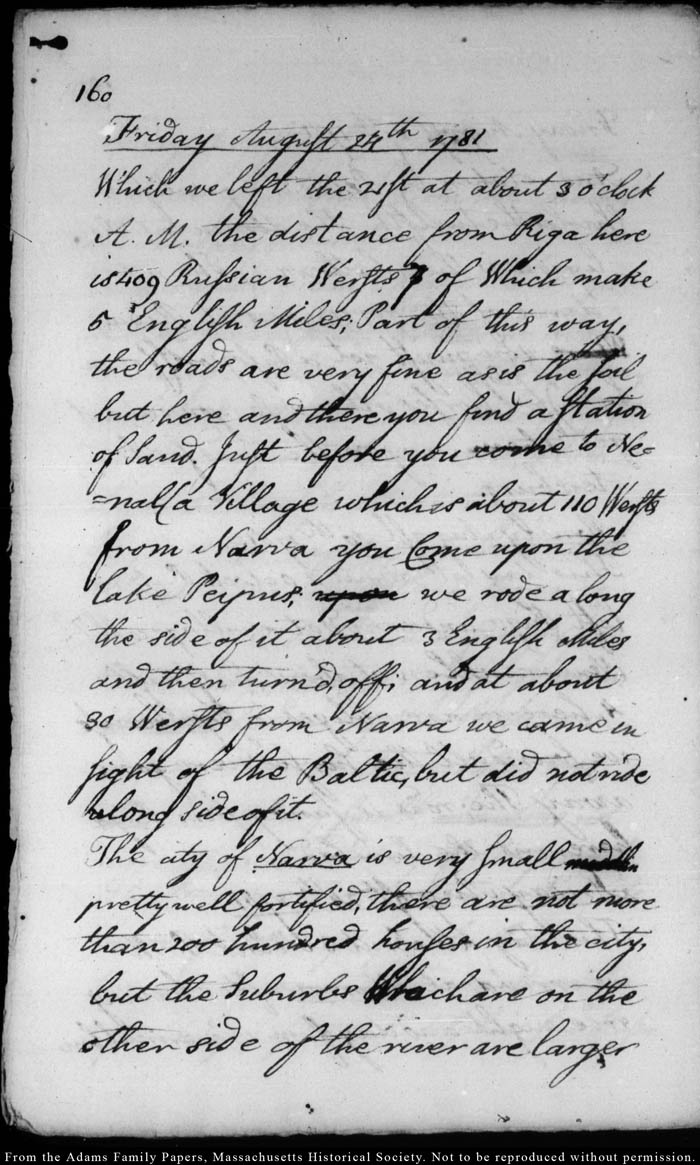 160
Friday August 24th 1781
Which we left the 21st at about 3 o'clock
A. M. the distance from Riga here
is 409 Russian Wersts 7 of Which make
5 English Miles; Part of this way,
the roads are very fine as is the soil
but here and there you find a station
of Sand. Just before you come to Ne=
=nal (a Village which is about 110 Wersts
from Narva you Come upon the
lake Peipus; upon we rode along
the side of it about 3 English Miles
and then turn'd, off; and at about
30 Wersts from Narva we came in
sight of the Baltic, but did not ride
along side of it.
The city of Narva is very small
pretty well fortified, there are not more
than 200 hundred houses in the city,
but the Suburbs Which are on the
other side of the river are larger
From the Adams Family Papers, Massachusetts Historical Society. Not to be reproduced without permission.